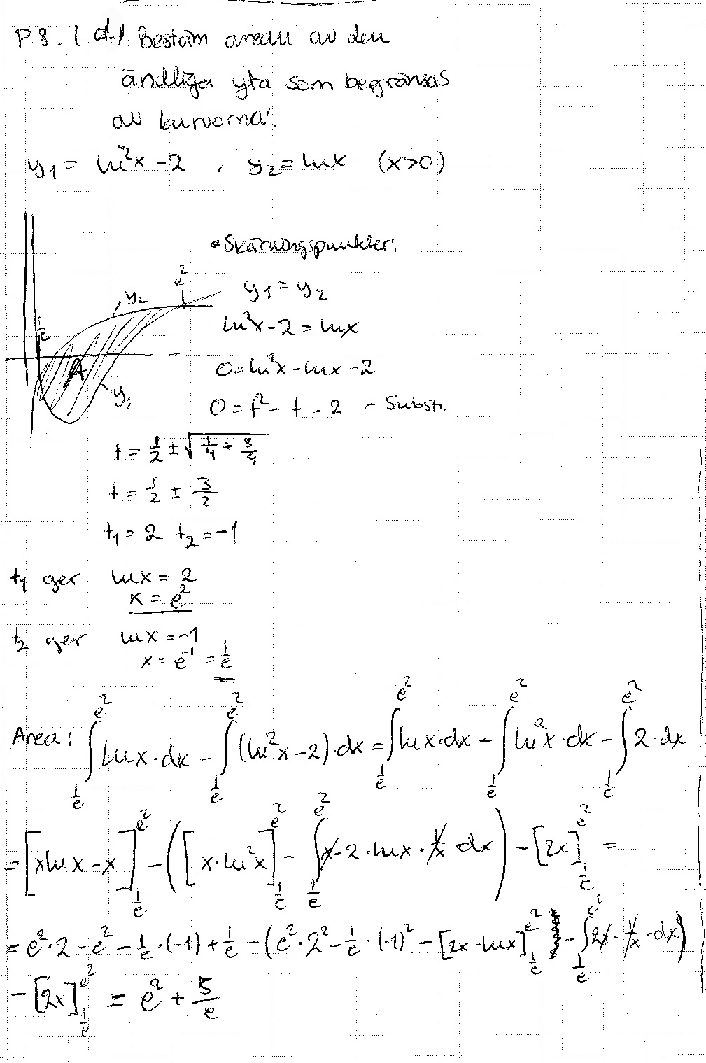 P 8.1 d) Bestäm arean av den
ändliga yta som begränsas
av kurvorna:
y₁ = ln²x - 2 , y₂ = lnx (x>0)
• Skärningspunkter:
y₁ = y₂
ln²x - 2 = lnx
0 = ln²x - lnx - 2
0 = t² - t - 2 - Subst.
e²
y₂
1/e
A
y₁
t = 1/2 ± √(1/4 + 8/4)
t = 1/2 ± 3/2
t₁ = 2 t₂ = -1
t₁ ger lnx = 2
x = e²
t₂ ger lnx = -1
x = e⁻¹ = 1/e
Area: ∫_{1/e}^{e²} lnx·dx - ∫_{1/e}^{e²} (ln²x - 2)·dx = ∫_{1/e}^{e²} lnx·dx - ∫_{1/e}^{e²} ln²x·dx - ∫_{1/e}^{e²} 2·dx
= [xlnx - x]_{1/e}^{e²} - ([x·ln²x]_{1/e}^{e²} - ∫_{1/e}^{e²} x·2·lnx·1/x dx) - [2x]_{1/e}^{e²} =
= e²·2 - e² - 1/e·(-1) + 1/e - (e²·2² - 1/e·(-1)² - [2x·lnx]_{1/e}^{e²} - ∫_{1/e}^{e²} 2x·1/x·dx)
- [2x]_{1/e}^{e²} = e² + 5/e